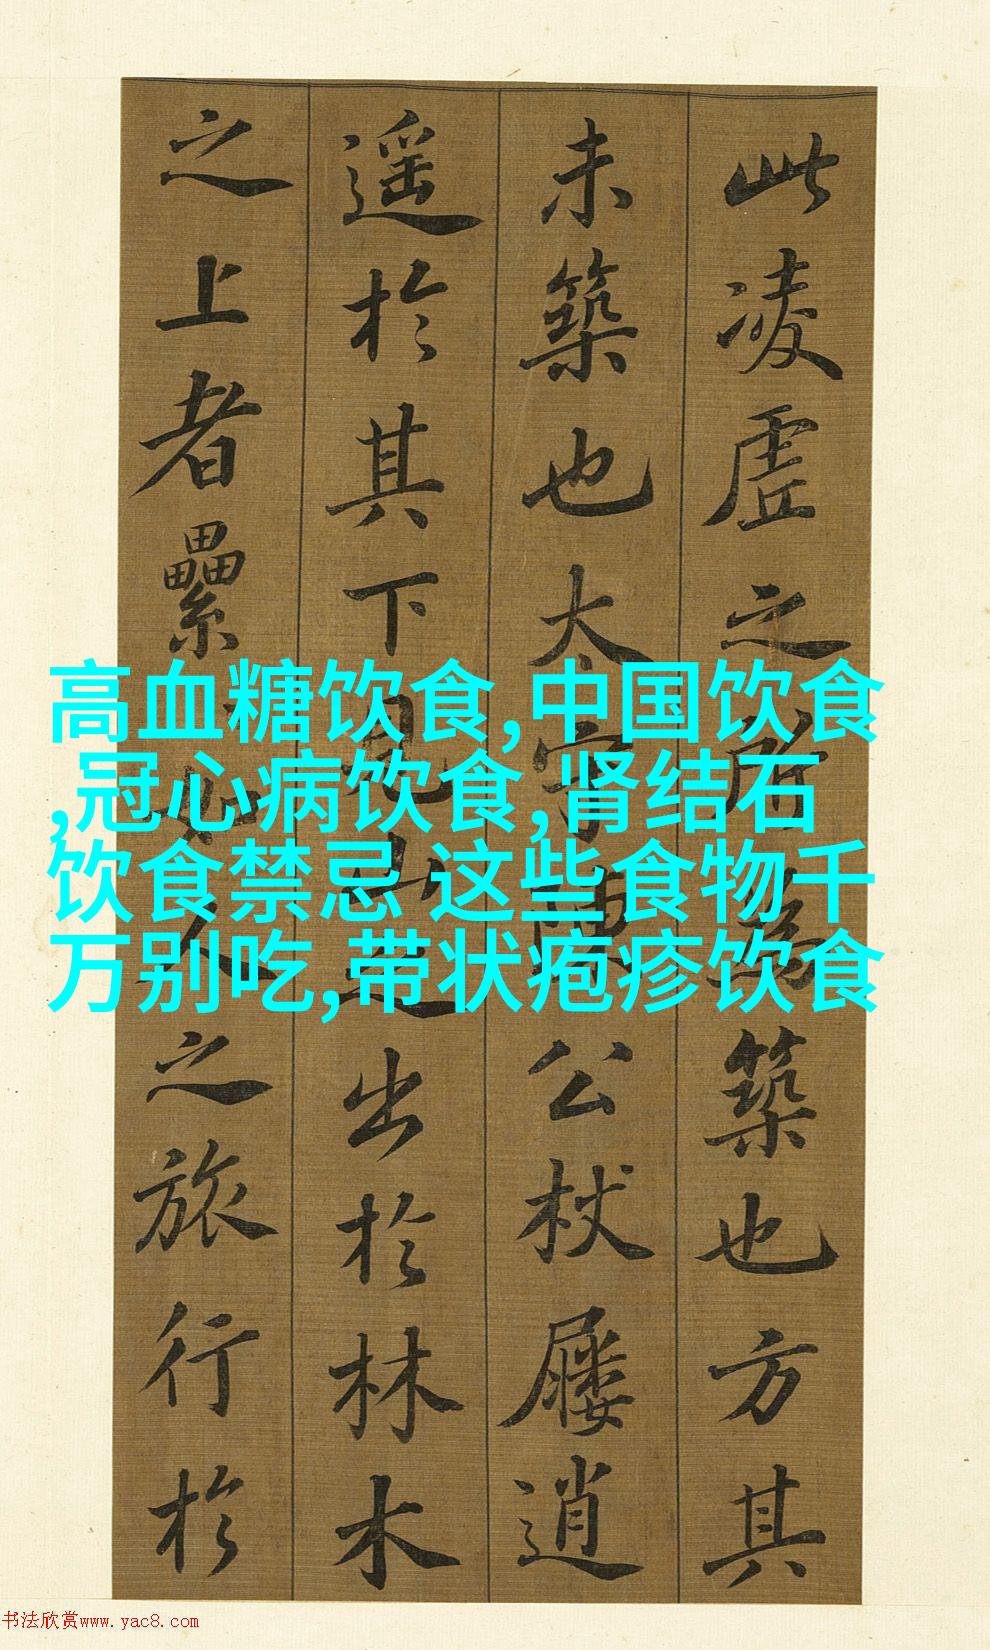 此凌虗之所為築也方其
未築也太守陳公杖屨逍
遥於其下見山之出於林木
之上者纍如人之旅行於
高血糖饮食,中国饮食
,冠心病饮食,肾结石
饮食禁忌 这些食物千
万别吃,带状疱疹饮食
书法欣赏www.yac8.com